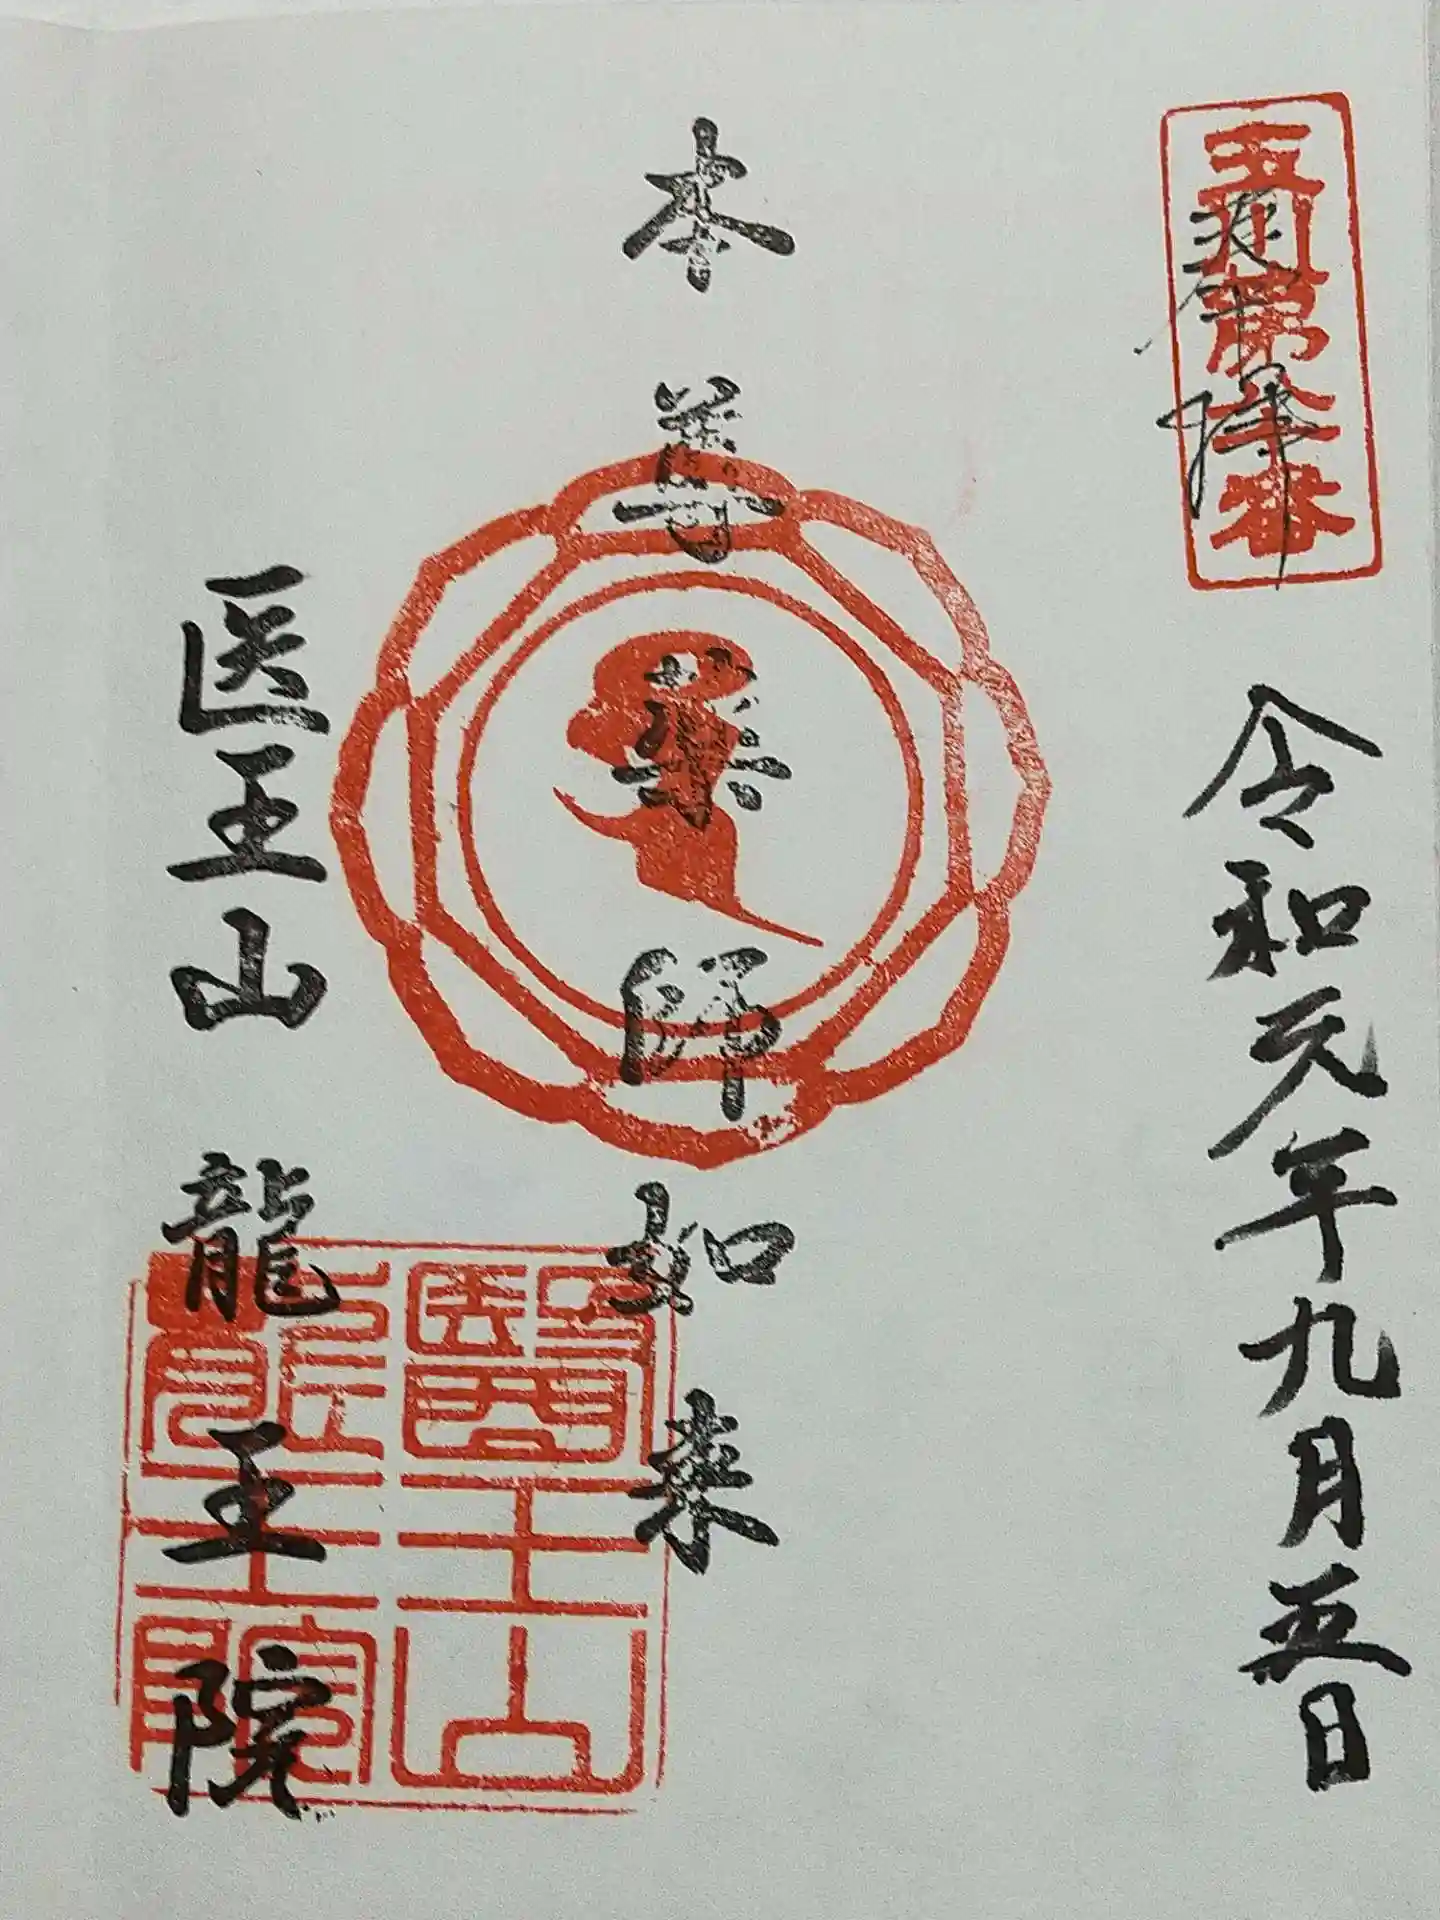 奉拝
令和元年九月五日
本尊薬師如来
医王山龍王院
醫王山
龍王院